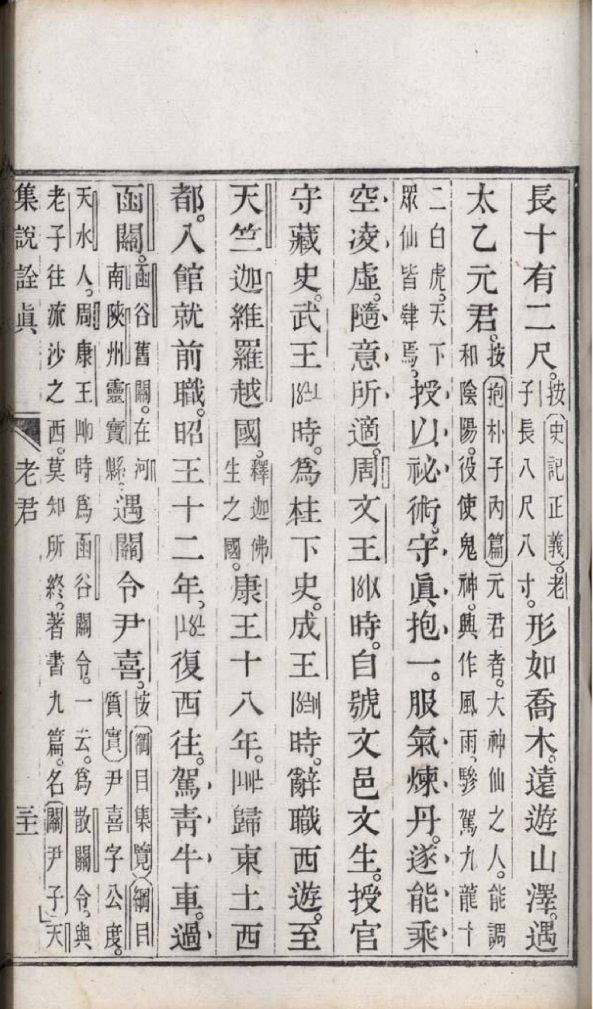 長十有二尺。按〔史記正義〕。老子長八尺八寸。形如喬木。遠遊山澤。遇
太乙元君。按〔抱朴子內篇〕元君者。大神仙之人。能調和陰陽。役使鬼神。興作風雨。驂駕九龍十
二白虎。天下眾仙皆肆焉。授以祕術。守眞抱一。服氣煉丹。遂能乘
空凌虛。隨意所適。周文王時。自號文邑文生。授官
守藏史。武王時。爲柱下史。成王時。辭職西遊。至
天竺迦維羅越國。釋迦佛生之國。康王十八年。歸東土西
都。入館就前職。昭王十二年。復西往。駕靑牛車。過
函關。函谷舊關。在河南陝州靈寶縣。遇關令尹喜。按〔綱目集覽〕〔綱目質實〕尹喜字公度。
天水人。周康王時爲函谷關令。一云。爲散關令。與
老子往流沙之西。莫知所終。著書九篇。名〔關尹子〕」天
集說詮眞 老君